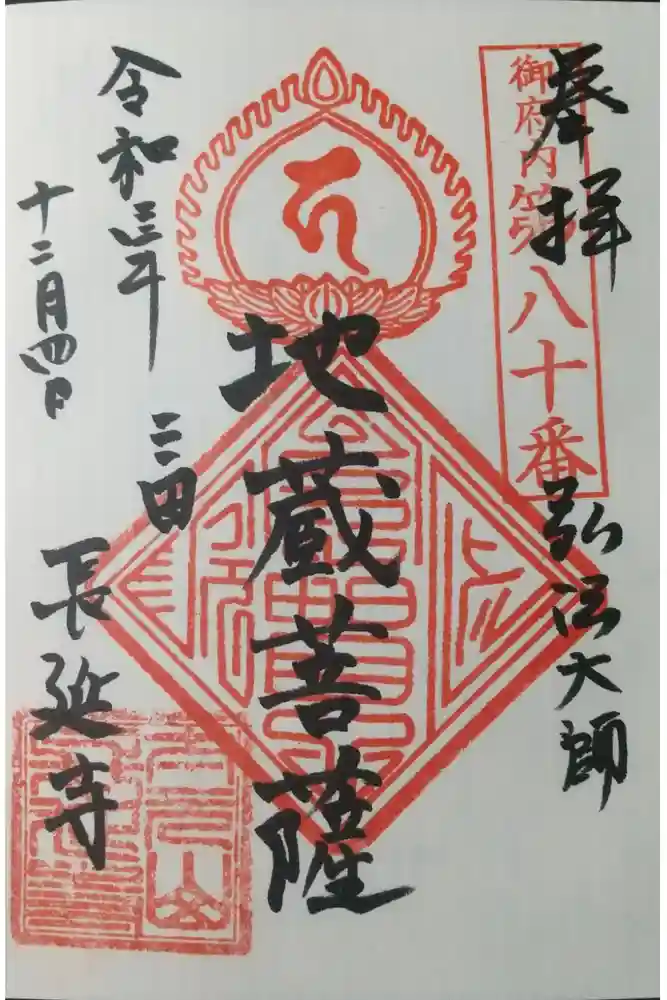 奉拝
御府内第八十番
弘法大師
地蔵菩薩
令和三年
十二月四日
三田
長延寺